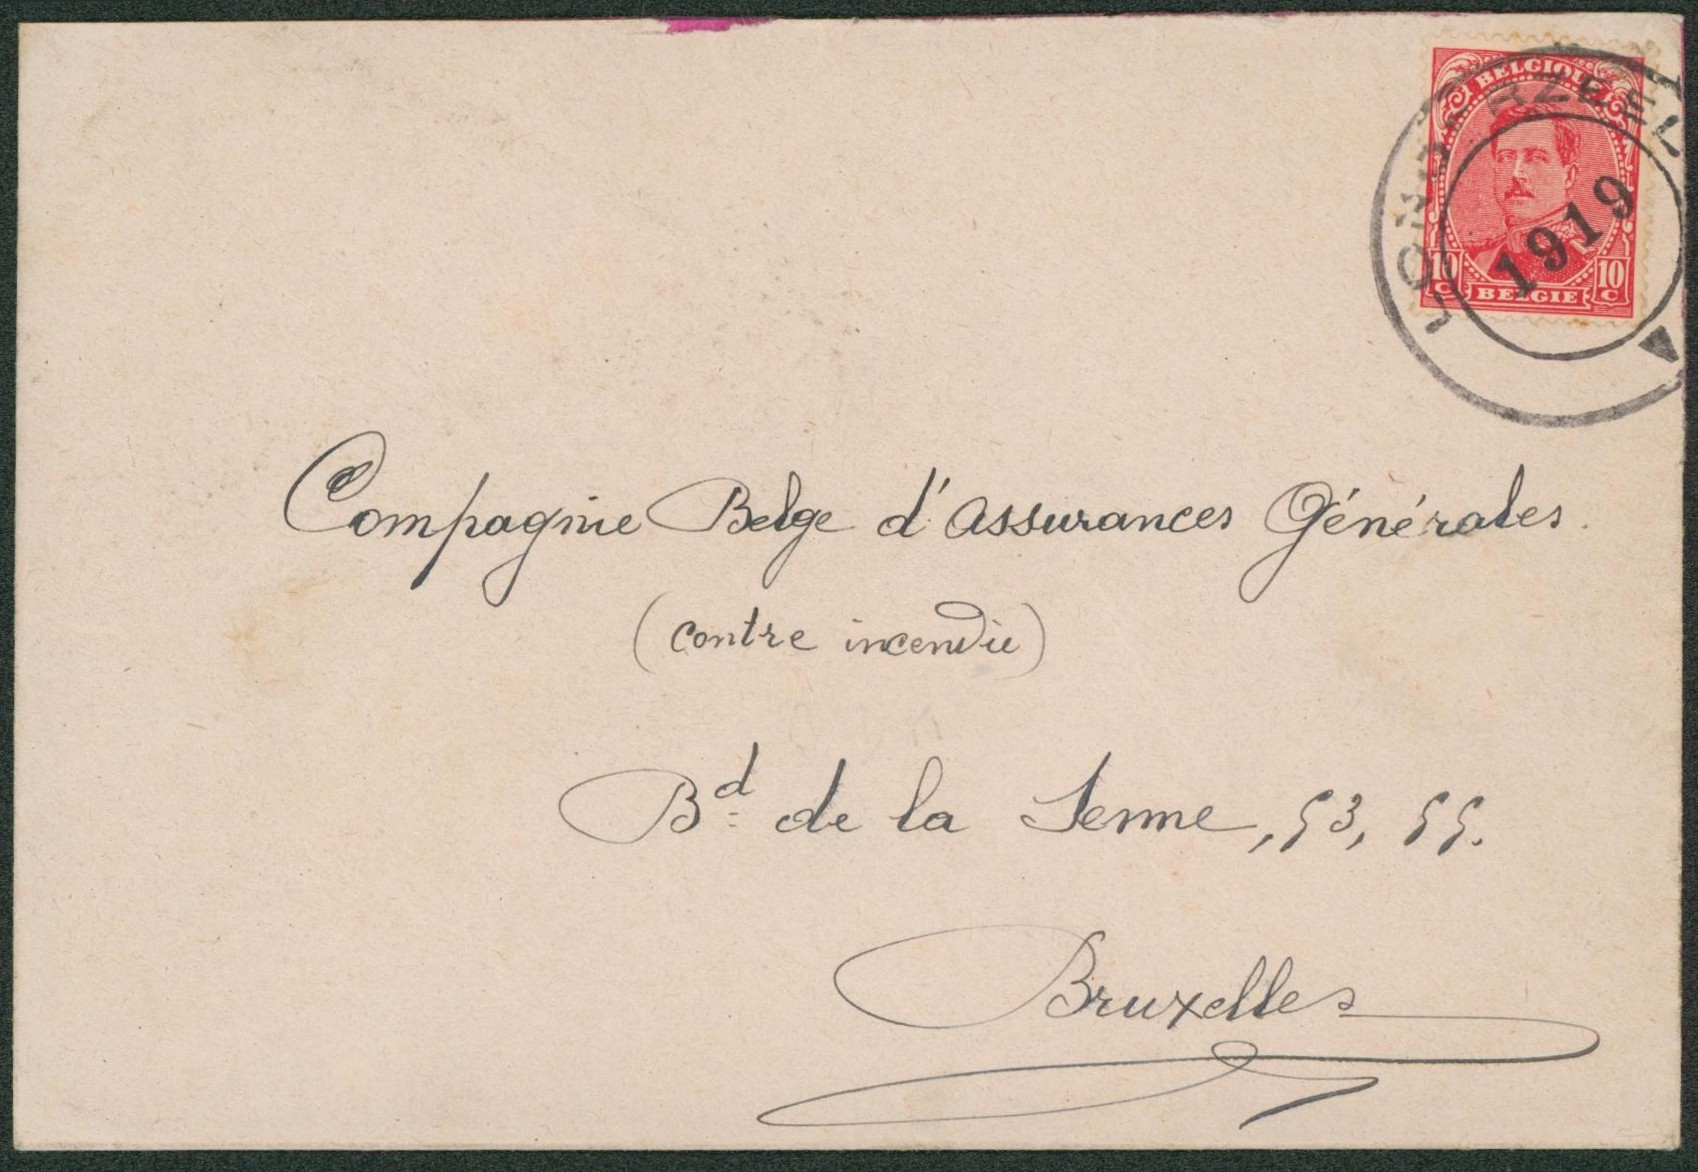 BELGIQUE
LONDERZEEL
1919
10 C
10 C
BELGIE
Compagnie Belge d'Assurances Générales.
(contre incendie)
Bd de la Senne, 53, 55.
Bruxelles